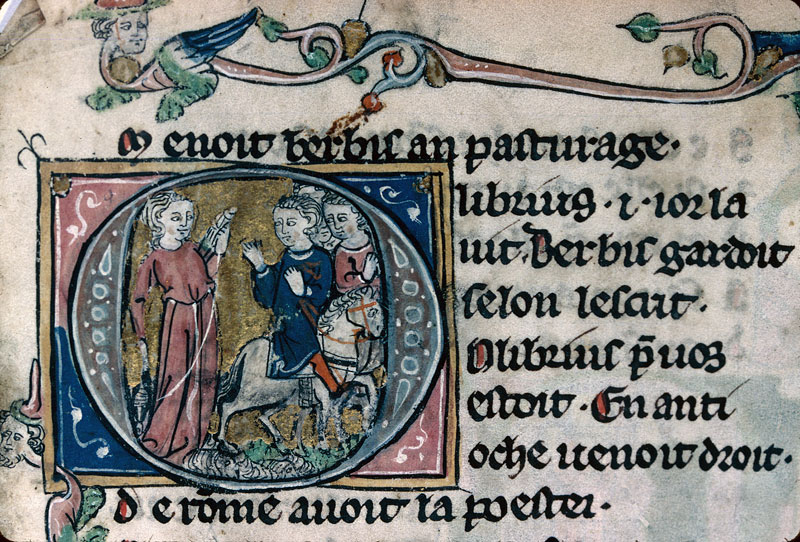 Menoit berbis an pasturage·
librius · i · ior la
uit. Berbis gardoit
selon lescrit·
Olibrius p̄uos
estoit · En anti
oche uenoit droit·
de rōme auoit la poestei·